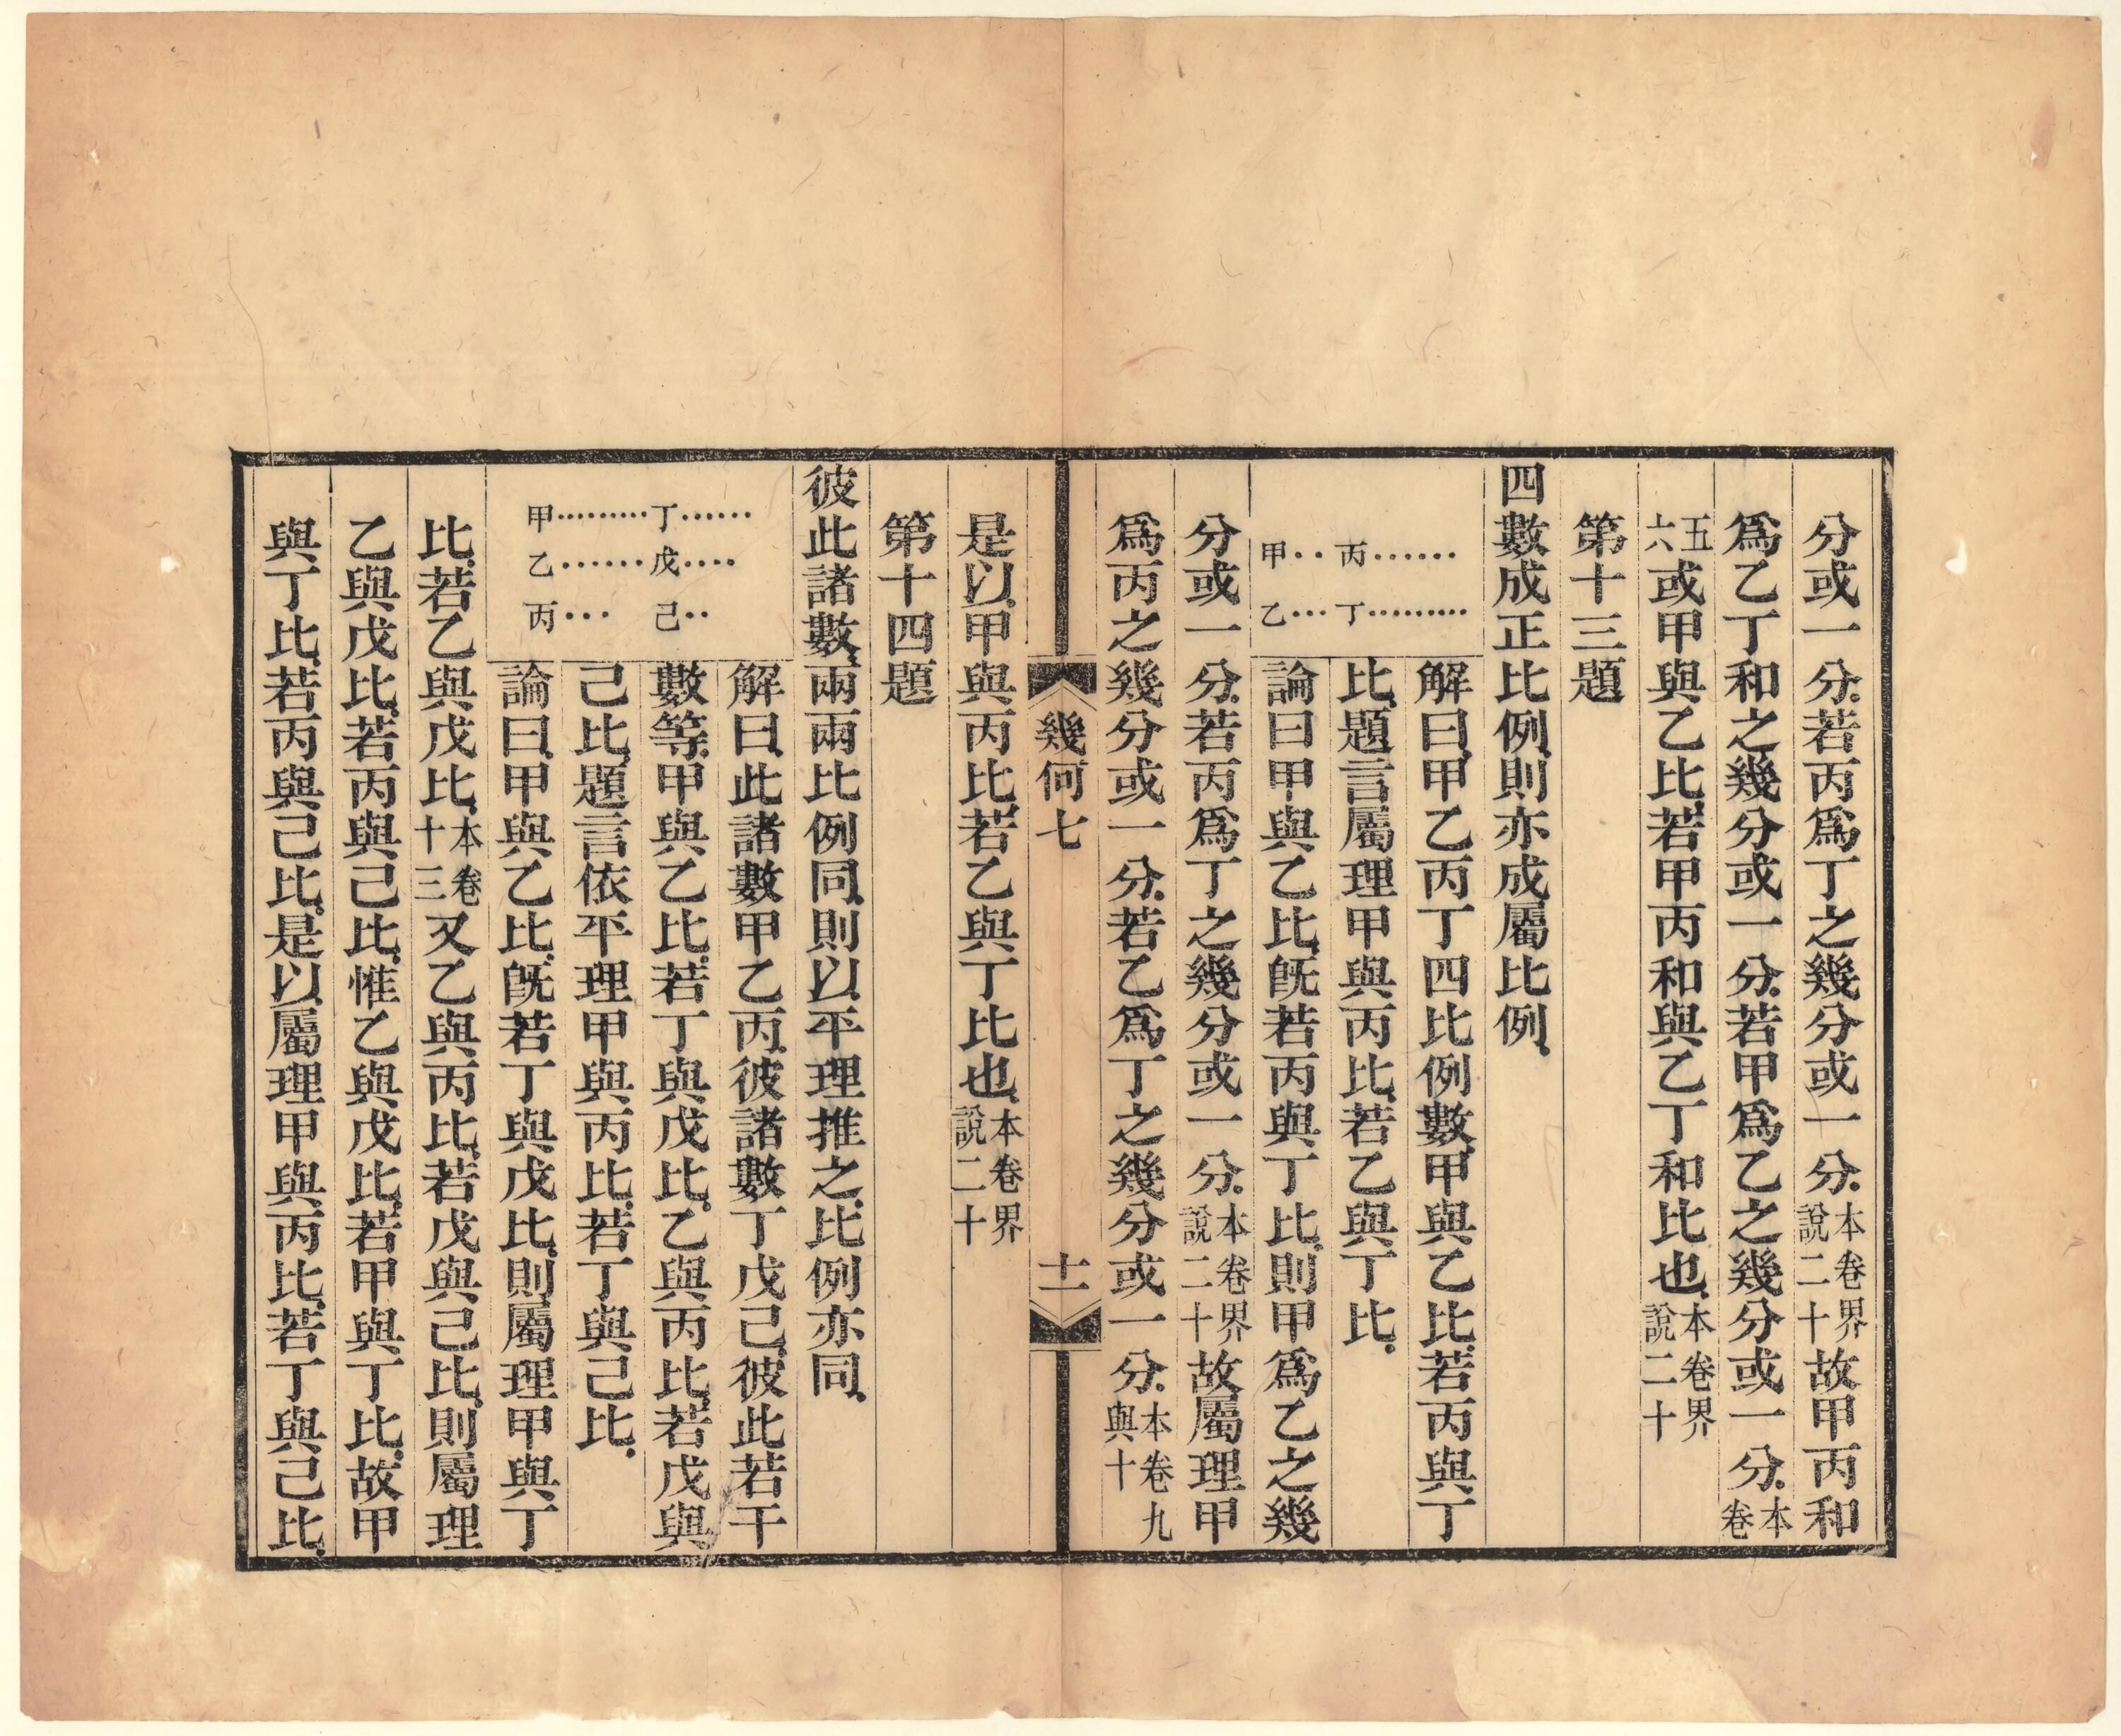 分或一分若丙爲丁之幾分或一分本卷界說二十故甲丙和
爲乙丁和之幾分或一分若甲爲乙之幾分或一分本卷
五六或甲與乙比若甲丙和與乙丁和比也本卷界說二十
第十三題
四數成正比例則亦成屬比例
甲‥丙……
乙…丁………
解曰甲乙丙丁四比例數甲與乙比若丙與丁
比題言屬理甲與丙比若乙與丁比
論曰甲與乙比旣若丙與丁比則甲爲乙之幾
分或一分若丙爲丁之幾分或一分本卷界說二十故屬理甲
爲丙之幾分或一分若乙爲丁之幾分或一分本卷九與十
幾何七 十二
是以甲與丙比若乙與丁比也本卷界說二十
第十四題
彼此諸數兩兩比例同則以平理推之比例亦同
甲………丁……
乙……戊‥‥
丙… 己‥
解曰此諸數甲乙丙彼諸數丁戊己彼此若干
數等甲與乙比若丁與戊比乙與丙比若戊與
己比題言依平理甲與丙比若丁與己比
論曰甲與乙比旣若丁與戊比則屬理甲與丁
比若乙與戊比本卷十三又乙與丙比若戊與己比則屬理
乙與戊比若丙與己比惟乙與戊比若甲與丁比故甲
與丁比若丙與己比是以屬理甲與丙比若丁與己比